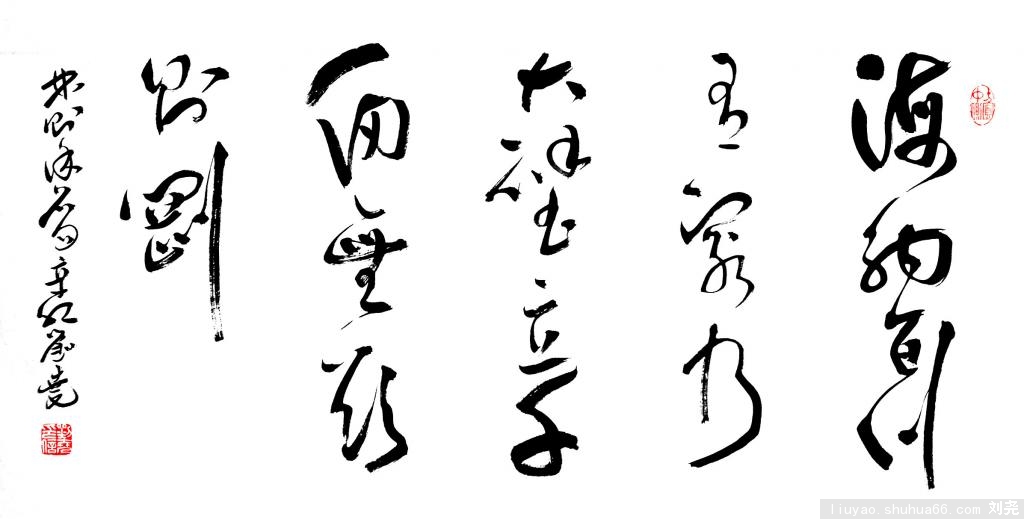 海納百川
有容乃
大壁立千
仞無欲
則剛
林則徐 辛卯劉堯
liuyao.shuhua66.com 刘尧